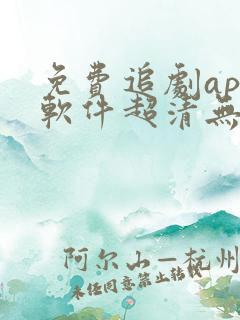 免費追劇ap
軟件超清無
阿尔山－杭州
未经同意禁止转载